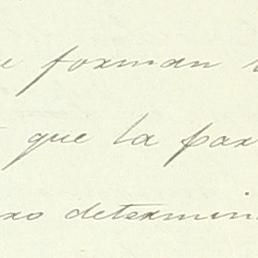 forman
que la par
determin